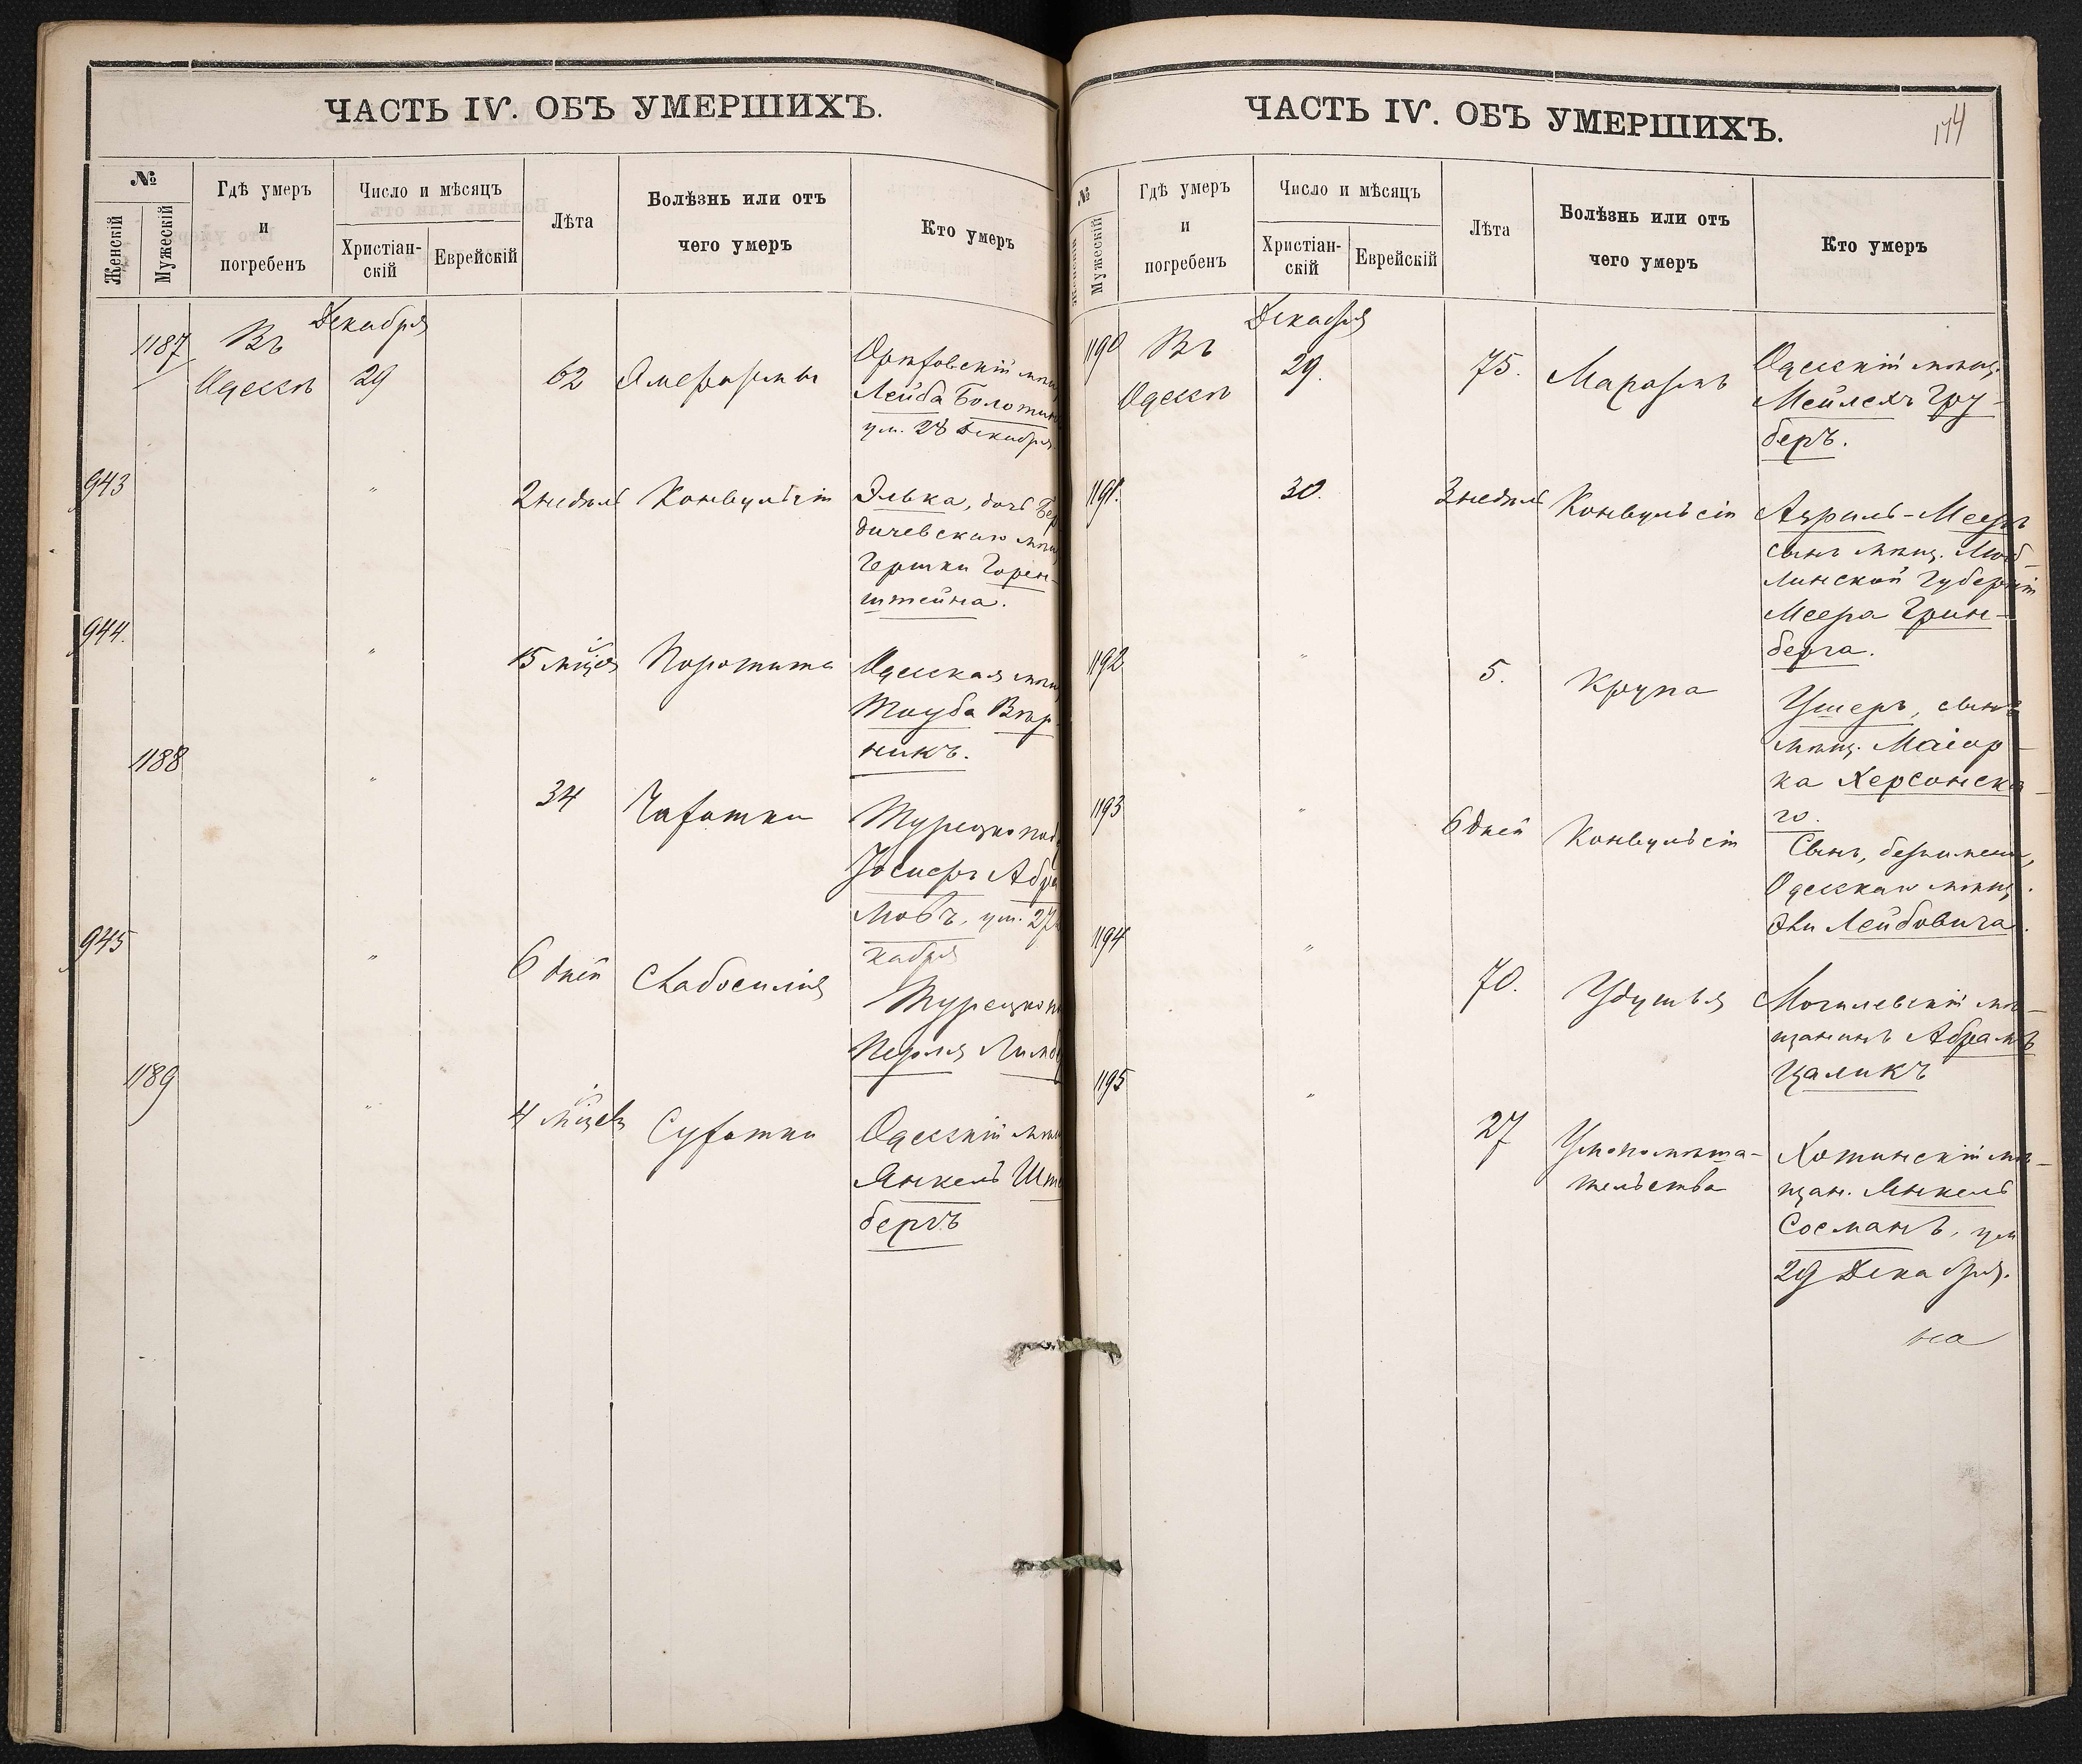 ЧАСТЬ IV. ОБЪ УМЕРШИХЪ.
№
Женскій
Мужескій
Гдѣ умеръ
и
погребенъ
Число и мѣсяцъ
Христіан-
скій
Еврейскій
Лѣта
Болѣзнь или отъ
чего умеръ
Кто умеръ
Декабря
1187
Въ
Одессѣ
29
62
Лейба
ум. 28 Декабря
943
"
2 недѣль
Конвульсіи
Элька, дочь Бер
дичевскаго мѣщ
Гершки Горен-
штейна.
944.
"
15 мѣсяц
Одесская мѣщ
Тауба Вѣр-
никъ.
1188
"
34
Чахотки
Іосифъ Абра
мовъ, ум. 27
кабря
945
"
6 дней
Слабосилія
Перля
1189
"
4 мѣсяц
Сухотки
Одесскій мѣщ
Янкель Ште
бергъ
ЧАСТЬ IV. ОБЪ УМЕРШИХЪ.
174
№
Женскій
Мужескій
Гдѣ умеръ
и
погребенъ
Число и мѣсяцъ
Христіан-
скій
Еврейскій
Лѣта
Болѣзнь или отъ
чего умеръ
Кто умеръ
Декабря
1190
Въ
Одессѣ
29.
75.
Маразмъ
Одесскій мѣщ.
Мейлехъ Гру-
беръ.
1191.
30.
3 недѣль
Конвульсіи
Азриль-Мееръ
сынъ мѣщ. Люб-
линской Губерніи
Меера Грин-
берга.
1192
"
5.
Крупа
Ушеръ, сынъ
мѣщ. Маіор-
ка Херсонска-
го.
1193
"
6 дней
Конвульсіи
Сынъ, безъимен.,
Одесскаго мѣщ.
Эли Лейбовича.
1194
"
70.
Удушья
Могилевскій мѣ-
щанинъ Абрамъ
Цаликъ
1195
"
27
Умопомѣша-
тельства
Хотинскій мѣ-
щан. Янкель
Сосманъ, ум
29 Декабря.
на